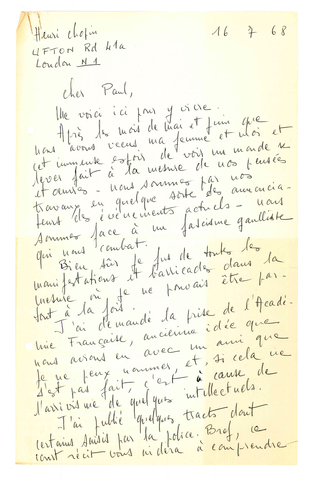 Henri Chopin 16 7 68
LIFTON Rd 41a
London N1
Cher Paul,
Me voici ici pour y vivre.
Après les mois de mai et juin que
nous avons vécus ma femme et moi et
cet immense espoir de voir un monde se
lever fait à la mesure de nos pensées
et œuvres - nous sommes par nos
travaux en quelque sorte des annoncia-
teurs des événements actuels - nous
sommes face à un fascisme gaulliste
qui nous combat.
Bien sûr je fus de toutes les
manifestations et barricades dans la
mesure où je ne pouvais être par-
tout à la fois.
J'ai demandé la prise de l'Acadé-
mie Française, ancienne idée que
nous avions eu avec un ami que
je ne peux nommer, et, si cela ne
s'est pas fait, c'est à cause de
l'arrivisme de quelques intellectuels.
J'ai publié quelques tracts dont
certains saisis par la police. Bref, ce
court récit vous aidera à comprendre